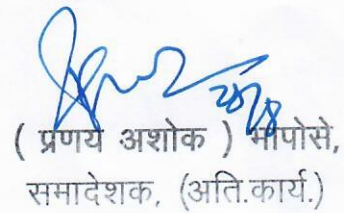 ( प्रणय अशोक ) भोपोसे,
समादेशक, (अति.कार्य.)